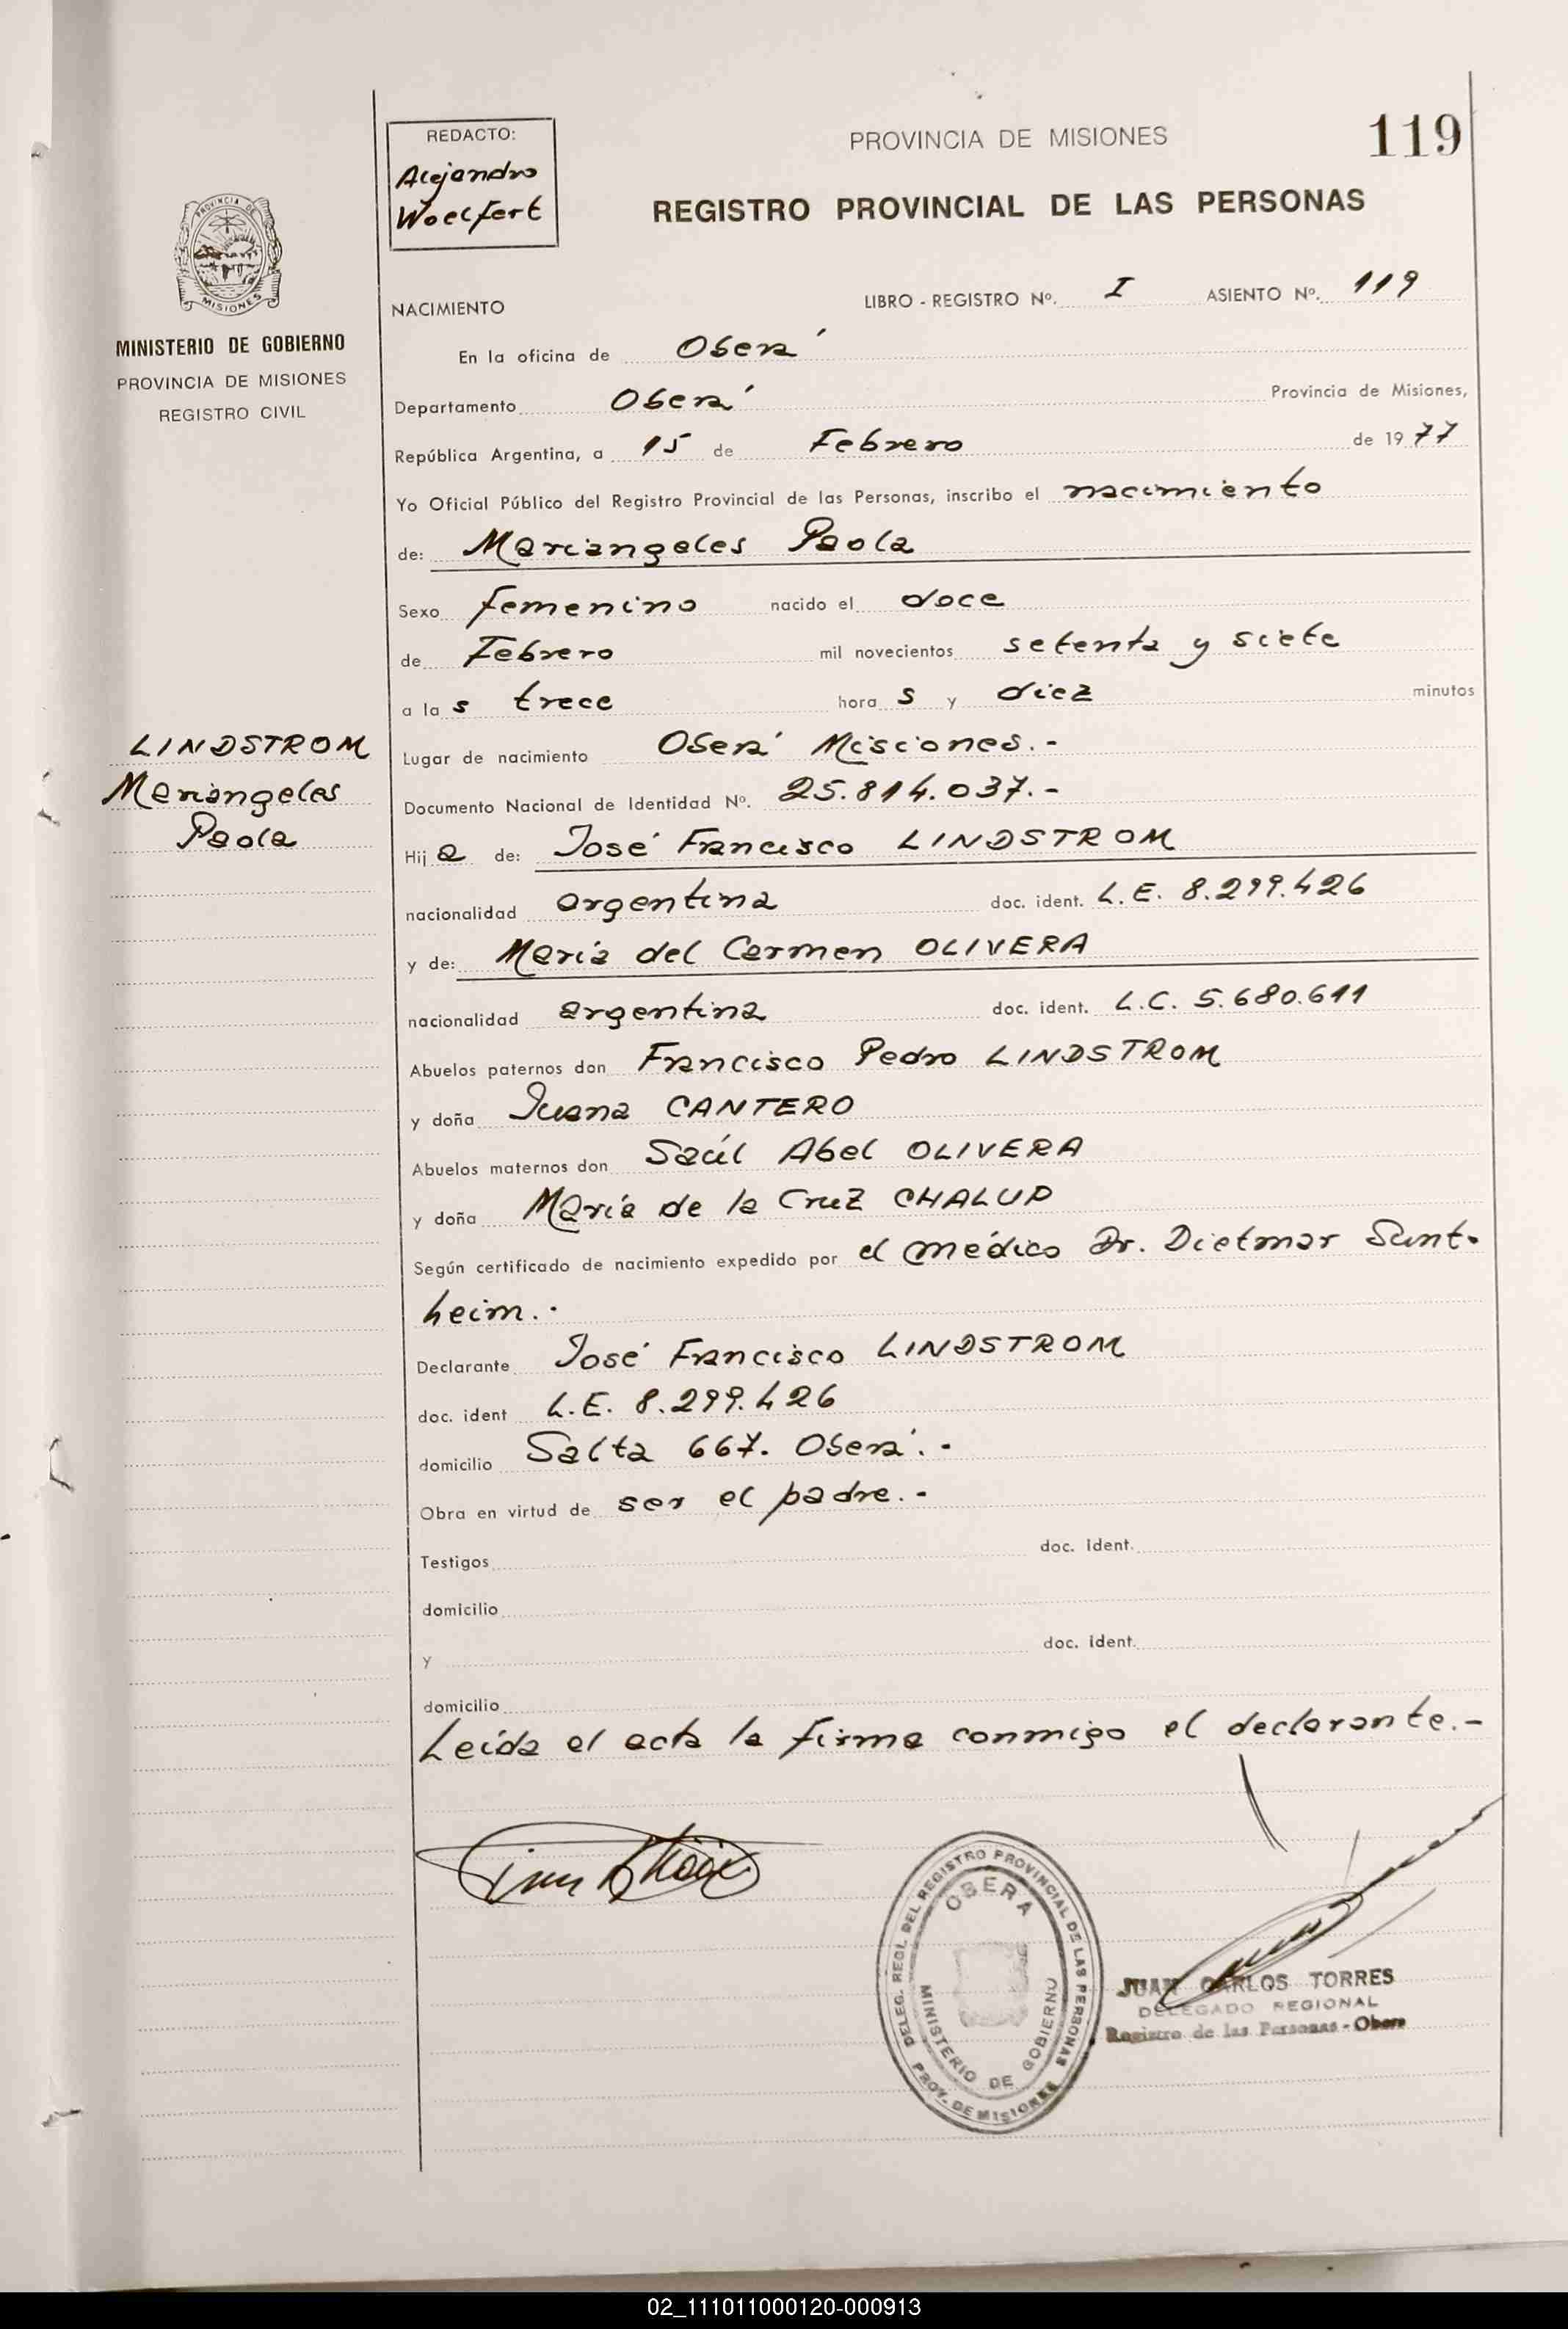 REDACTO:
Alejandro
Woelfert
PROVINCIA DE MISIONES
119
REGISTRO PROVINCIAL DE LAS PERSONAS
PROVINCIA DE
MISIONES
MINISTERIO DE GOBIERNO
PROVINCIA DE MISIONES
REGISTRO CIVIL
NACIMIENTO LIBRO - REGISTRO Nº. I ASIENTO Nº. 119
En la oficina de Oberá
Departamento Oberá Provincia de Misiones,
República Argentina, a 15 de Febrero de 1977
Yo Oficial Público del Registro Provincial de las Personas, inscribo el nacimiento
de: Mariangeles Paola
Sexo femenino nacido el doce
de Febrero mil novecientos setenta y siete
a las trece horas y diez minutos
LINDSTROM
Mariangeles
Paola
Lugar de nacimiento Oberá Misiones.-
Documento Nacional de Identidad Nº. 25.814.037.-
Hija de: José Francisco LINDSTROM
nacionalidad argentina doc. ident. L.E. 8.299.426
y de: María del Carmen OLIVERA
nacionalidad argentina doc. ident. L.C. 5.680.611
Abuelos paternos don Francisco Pedro LINDSTROM
y doña Juana CANTERO
Abuelos maternos don Saúl Abel OLIVERA
y doña María de la Cruz CHALUP
Según certificado de nacimiento expedido por el médico Dr. Dietmar Sunt-
heim.-
Declarante José Francisco LINDSTROM
doc. ident L.E. 8.299.426
domicilio Salta 667. Oberá.-
Obra en virtud de ser el padre.-
Testigos doc. ident.
domicilio
y doc. ident.
domicilio
Leída el acta la firma conmigo el declarante.-
DELEG. REGL. DEL REGISTRO PROVINCIAL DE LAS PERSONAS
OBERA
MINISTERIO DE GOBIERNO
PROV. DE MISIONES
JUAN CARLOS TORRES
DELEGADO REGIONAL
Registro de las Personas - Obera
02_111011000120-000913